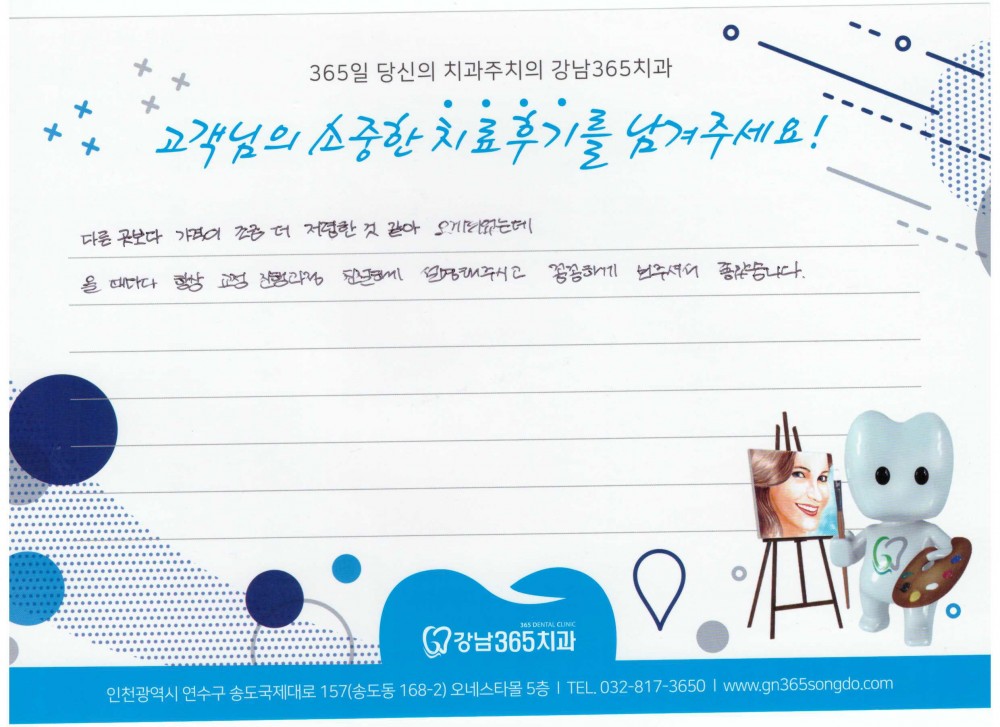 365일 당신의 치과주치의 강남365치과
고객님의 소중한 치료후기를 남겨주세요!
다른 곳보다 가격이 조금 더 저렴한 것 같아 오게되었는데
올 때마다 항상 교정 진행과정 친절하게 설명해주시고 꼼꼼하게 봐주셔서 좋았습니다.
365 DENTAL CLINIC
강남365치과
인천광역시 연수구 송도국제대로 157(송도동 168-2) 오네스타몰 5층 I TEL. 032-817-3650 I www.gn365songdo.com